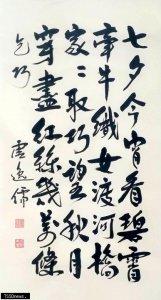 七夕今宵看碧霄
牽牛織女渡河橋
家々取巧望秋月
穿盡紅絲幾萬條
乞巧
逸儒
TSSDnews.